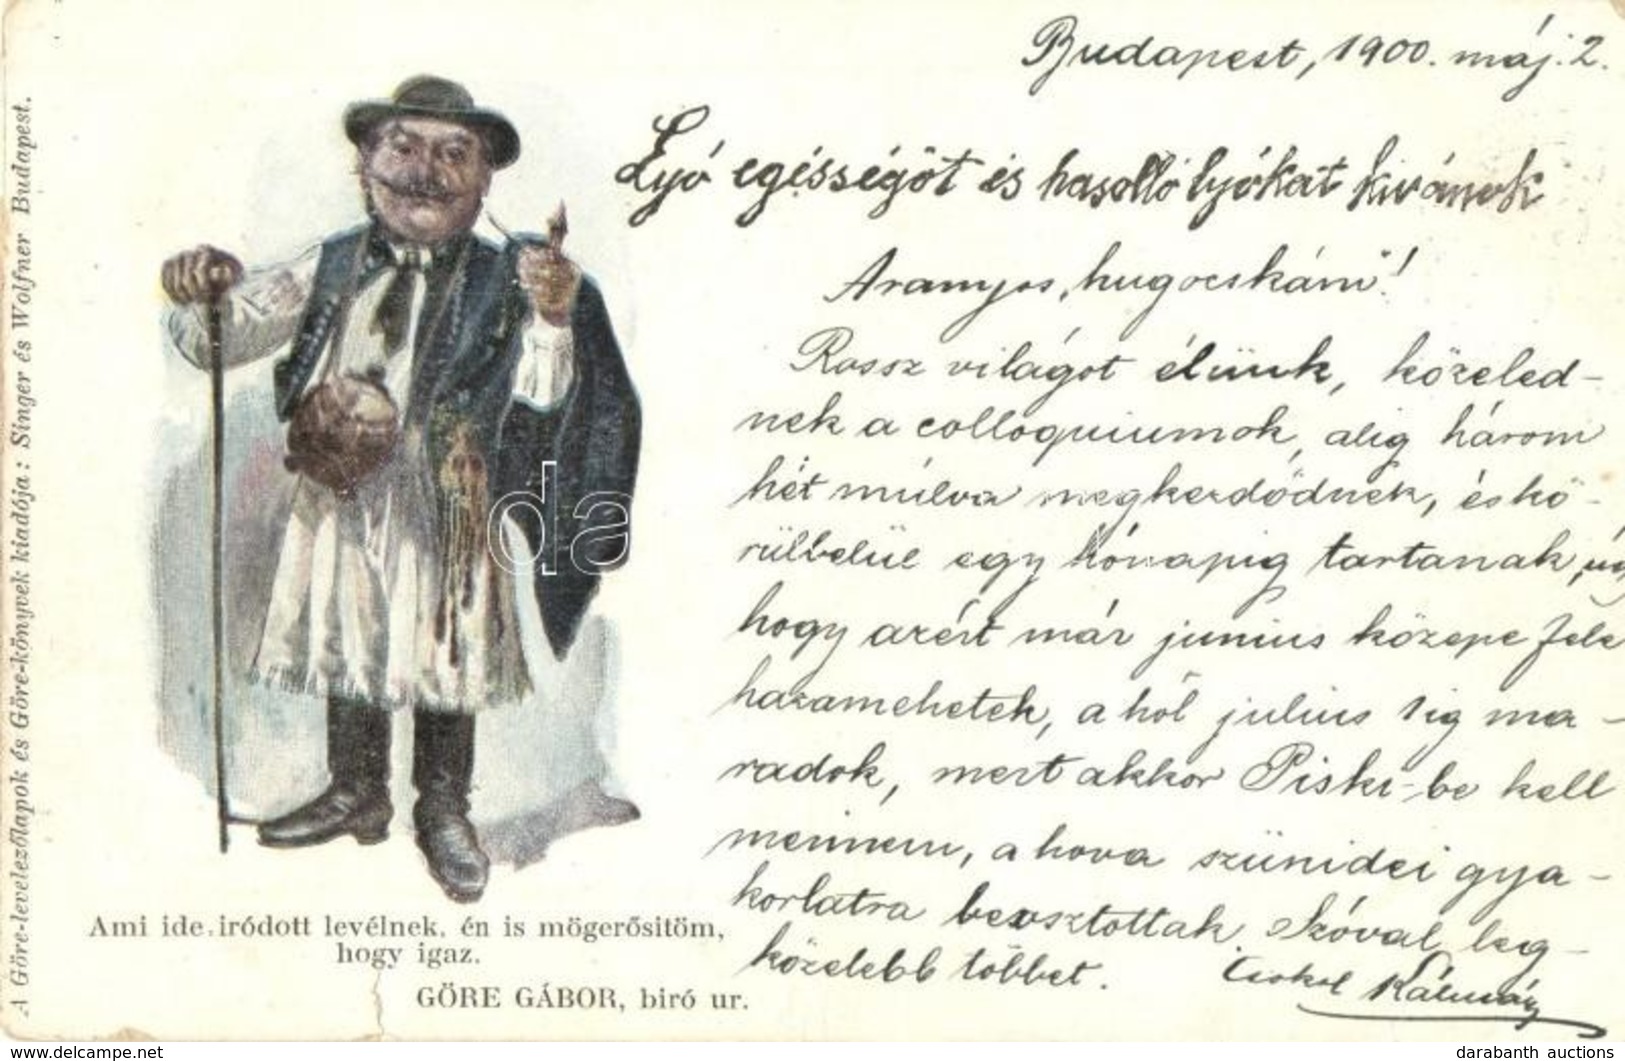 Budapest, 1900. máj. 2.
Lyó egésségöt és hasolló lyókat kivánok
Aranyos, hugocskám!
Rossz világot élünk, közeled-
nek a colloquiumok, alig három
hét múlva megkezdődnek, és kö-
rülbelül egy hónapig tartanak, úgy
hogy azért már junius közepe fele
hazamehetek, a hol julius 1ig ma-
radok, mert akkor Piski-be kell
mennem, a hova szünidei gya-
korlatra beosztottak. Szóval leg-
közelebb többet. Csokol Kálmán
A Göre-levelezőlapok és Göre-könyvek kiadója: Singer és Wolfner Budapest.
Ami ide iródott levélnek, én is mögerősitöm,
hogy igaz.
GÖRE GÁBOR, biró ur.
da
darabanth auctions
www.delcampe.net